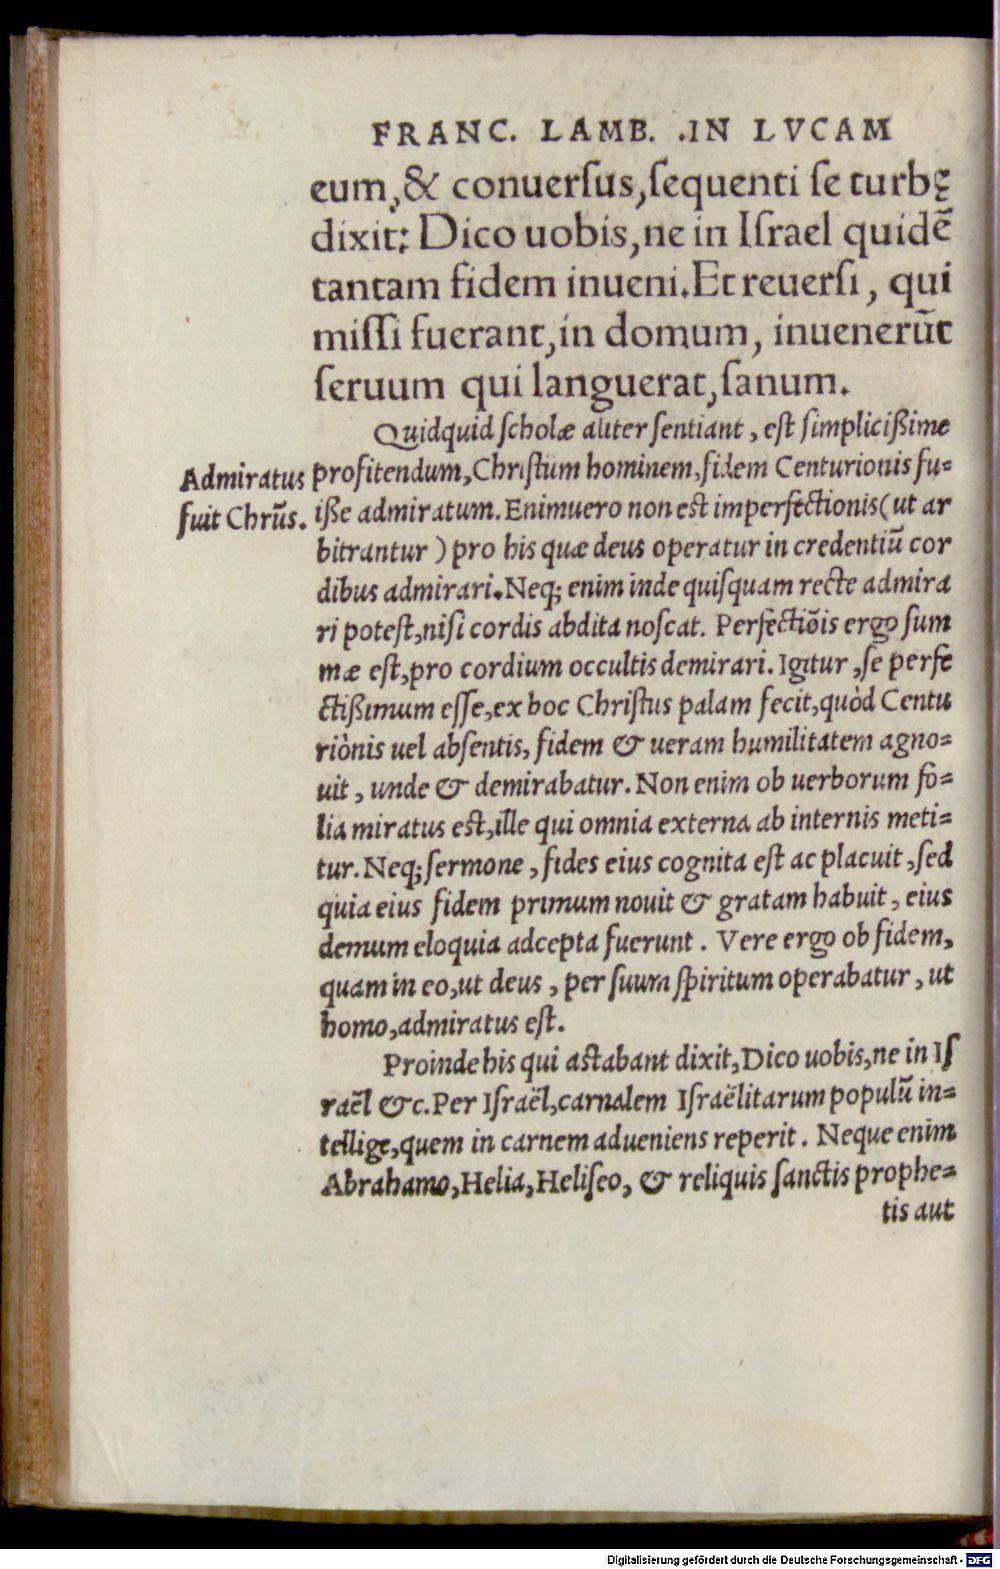 FRANC. LAMB. .IN LVCAM
eum, & conuerſus, ſequenti ſe turbę
dixit: Dico uobis, ne in Iſrael quidē
tantam fidem inueni. Et reuerſi, qui
miſſi fuerant, in domum, inuenerūt
ſeruum qui languerat, ſanum.
Quidquid ſcholæ aliter ſentiant, eſt ſimplicißime
Admiratus
fuit Chrūs.
profitendum, Chriſtum hominem, fidem Centurionis fu=
iße admiratum. Enimuero non est imperfectionis (ut ar
bitrantur) pro his quæ deus operatur in credentiū cor
dibus admirari. Neq; enim inde quiſquam recte admira
ri poteſt, niſi cordis abdita noſcat. Perfectiōis ergo ſum
mæ eſt, pro cordium occultis demirari. Igitur, ſe perfe
ctißimum eſſe, ex hoc Chriſtus palam fecit, quòd Centu
riònis uel abſentis, fidem & ueram humilitatem agno=
uit, unde & demirabatur. Non enim ob uerborum fo=
lia miratus est, ille qui omnia externa ab internis meti=
tur. Neq; ſermone, fides eius cognita est ac placuit, ſed
quia eius fidem primum nouit & gratam habuit, eius
demum eloquia adcepta fuerunt. Vere ergo ob fidem,
quam in eo, ut deus, per ſuum ſpiritum operabatur, ut
homo, admiratus eſt.
Proinde his qui aſtabant dixit, Dico uobis, ne in Iſ
raēl &c. Per Iſraël, carnalem Iſraëlitarum populū in=
tellige, quem in carnem adueniens reperit. Neque enim
Abrahamo, Helia, Heliſeo, & reliquis ſanctis prophe=
tis aut
Digitalisierung gefördert durch die Deutsche Forschungsgemeinschaft - DFG